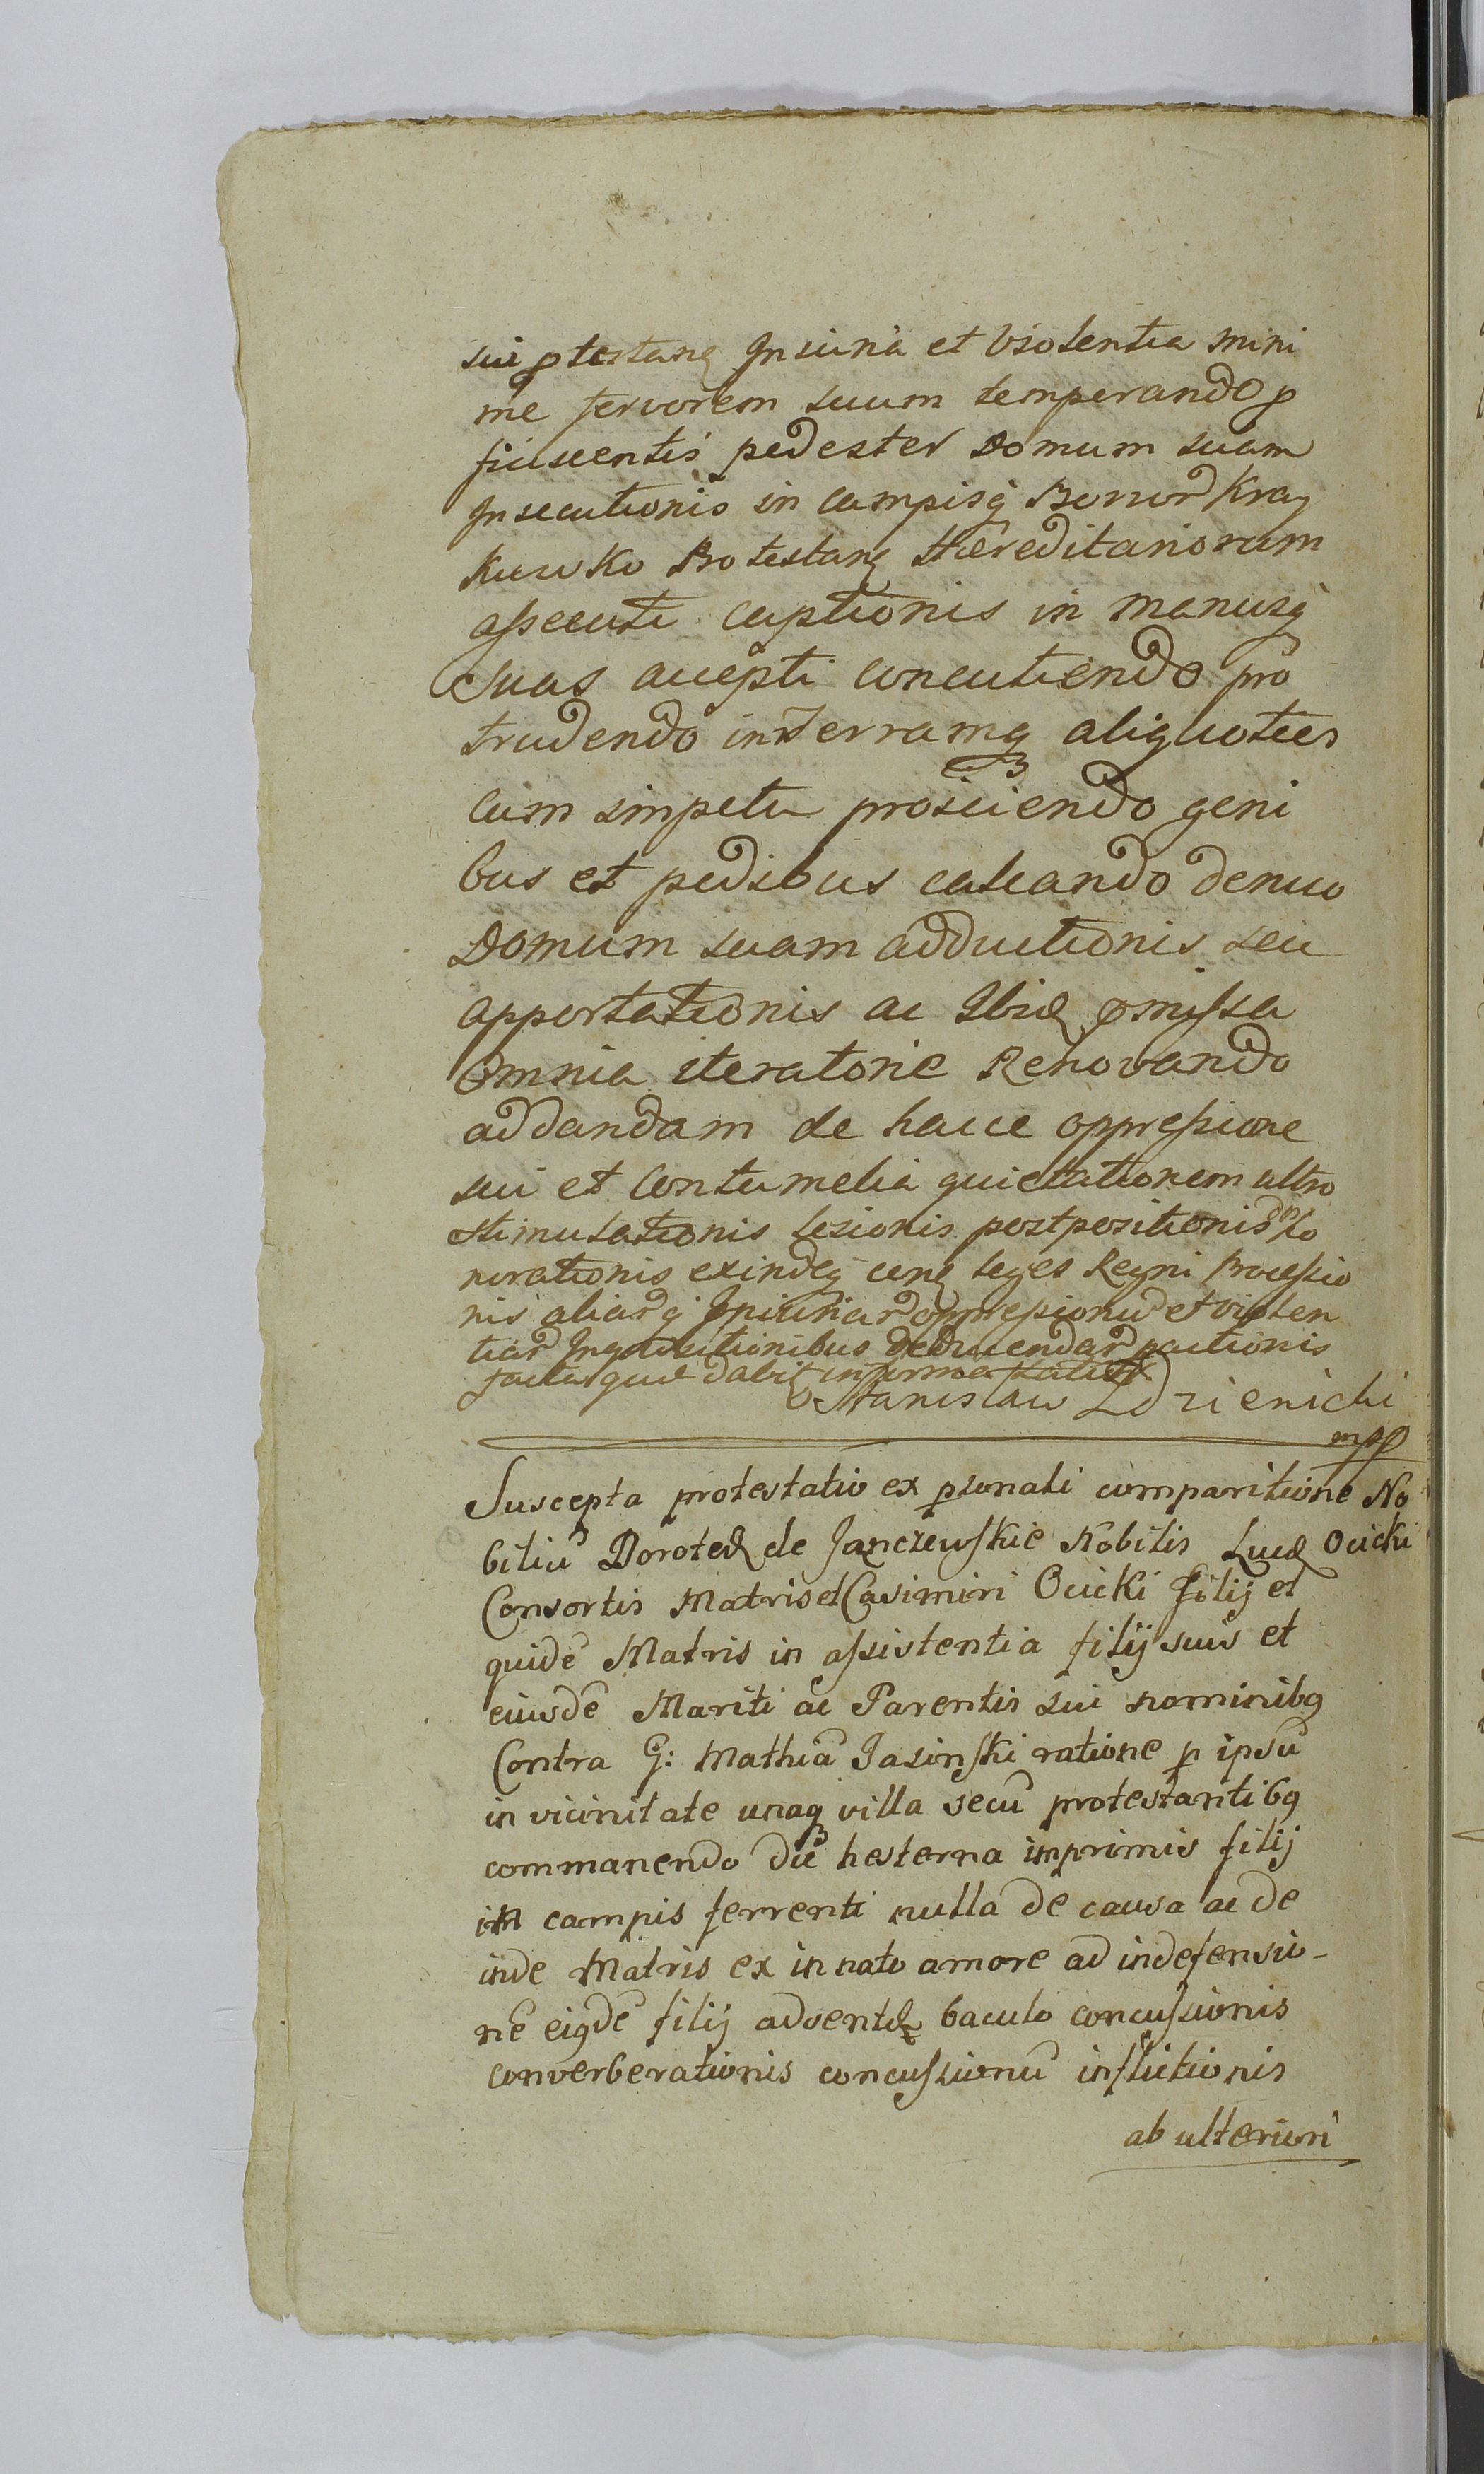 sui ptestans Iniuria et Violentia mini
me fervorem suum temperando p
fiiscentis pedester Domum suam
Insecutionis in campisq Bonor Kray
Protestans Hæreditariorum
assecuti captionis in manusq
Suas accepti concutiendo pro
trudendo in Terramq aliquoties
cum impetu proiiciendo geni
bus et pedibus calcando denuo
Domum suam adductionis seu
apportationis ac Ibid pmissa
Omnia iteratorie Renovando
ad dandam de hacce oppressione
sui et Contumelia quietationem ultro
stimulationis lesionis postpositionis
norationis exindeq leges Regni Processio
nis aliarq Iniuriar oppressionu et violen
tiar Inquisitionibus deducendar pactionis
facta dabit
Stanislaw Zdzienicki
mpp
Suscepta protestatio ex psonali comparitione No
biliu Doroteæ de Janczewskie Nobilis Lucæ Ocicki
Consortis Matris et Casimiri Ocicki Filij et
quide Matris in assistentia filij suis et
eiusde Mariti ac Parentis sui nominibq
Contra G: Mathia Jasinski ratione p ipsu
in vicinitate unaq villa secu protestantibq
commanendo die hesterna imprimis filij
in campis ferrenti nulla de causa ac de
inde Matris ex innato amore ad indefensio-
ne eiqde filij adventæ baculo concussionis
converberationis concussionu inflictionis
ab ulteriori